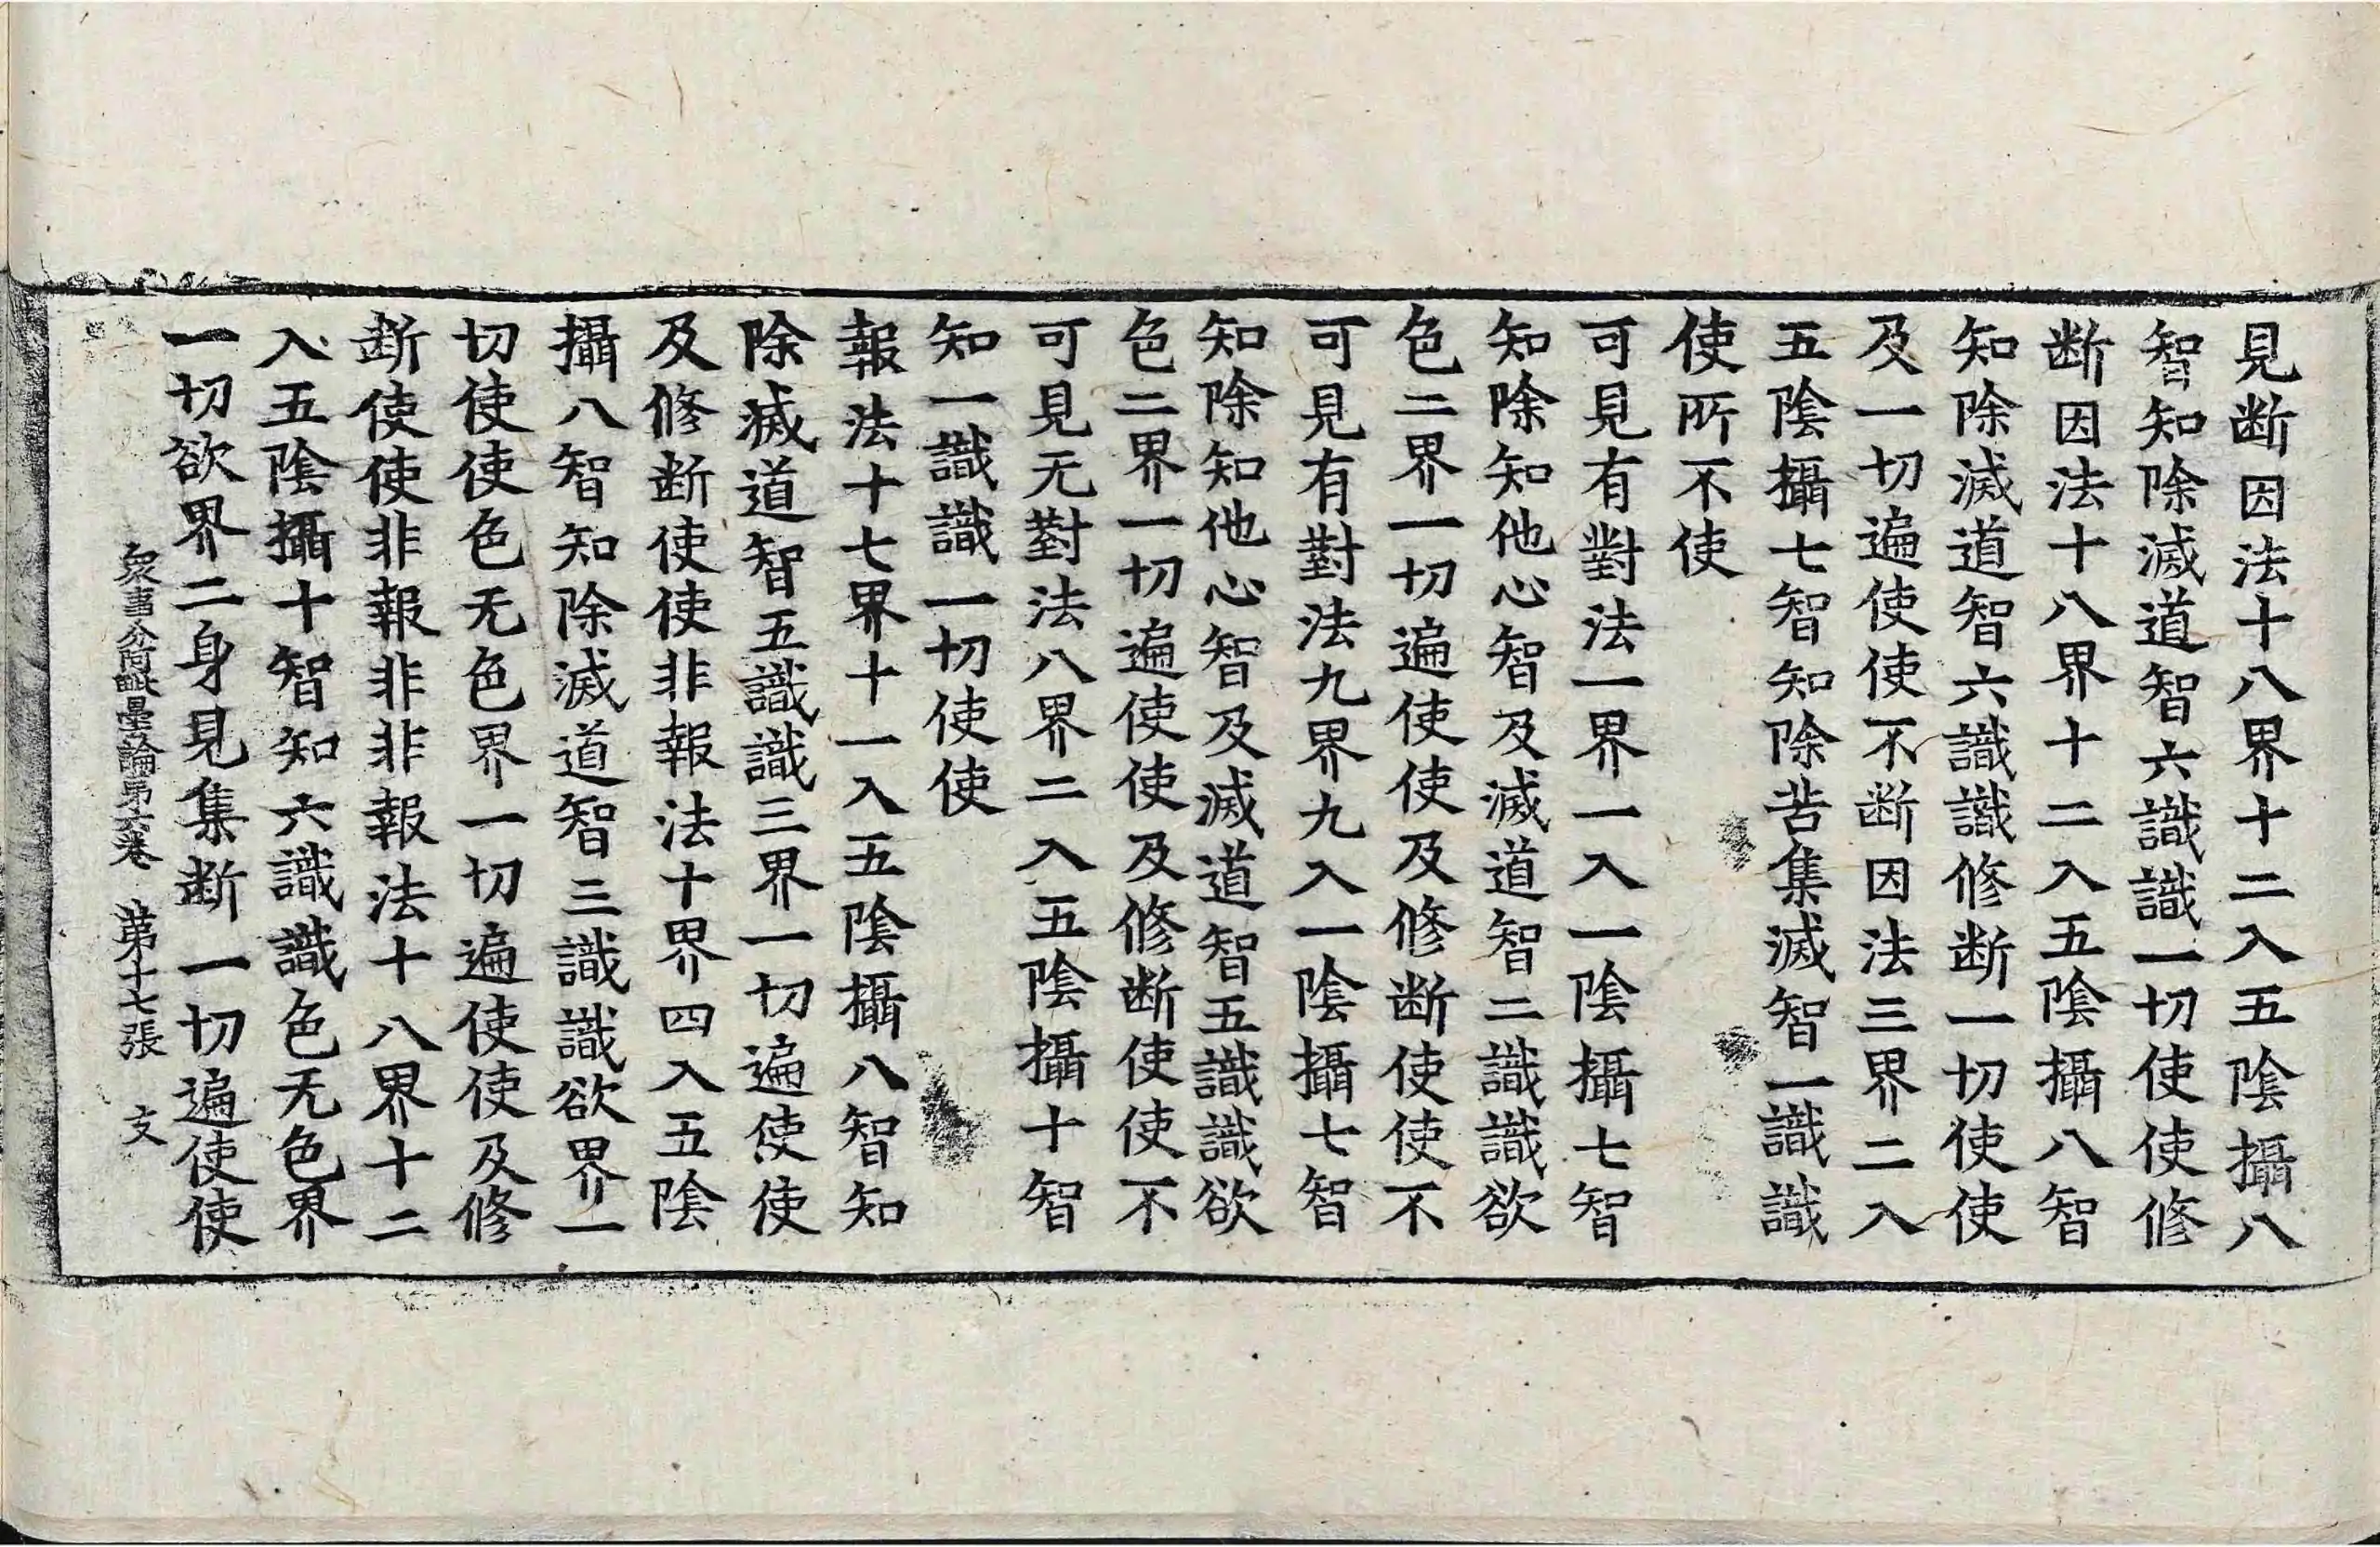 見断因法十八界十二入五陰攝八
智知除滅道智六識識一切使使修
断因法十八界十二入五陰攝八智
知除滅道智六識識修断一切使使
及一切遍使使不断因法三界二入
五陰攝七智知除苦集滅智一識識
使所不使
可見有對法一界一入一陰攝七智
知除知他心智及滅道智二識識欲
色二界一切遍使使及修断使使不
可見有對法九界九入一陰攝七智
知除知他心智及滅道智五識識欲
色二界一切遍使使及修断使使不
可見无對法八界二入五陰攝十智
知一識識一切使使
報法十七界十一入五陰攝八智知
除滅道智五識識三界一切遍使使
及修断使使非報法十界四入五陰
攝八智知除滅道智三識識欲界一
切使使色无色界一切遍使使及修
断使使非報非非報法十八界十二
入五陰攝十智知六識識色无色界
一切欲界二身見集断一切遍使使
衆事分阿毗曇論第六卷 第十七張 文